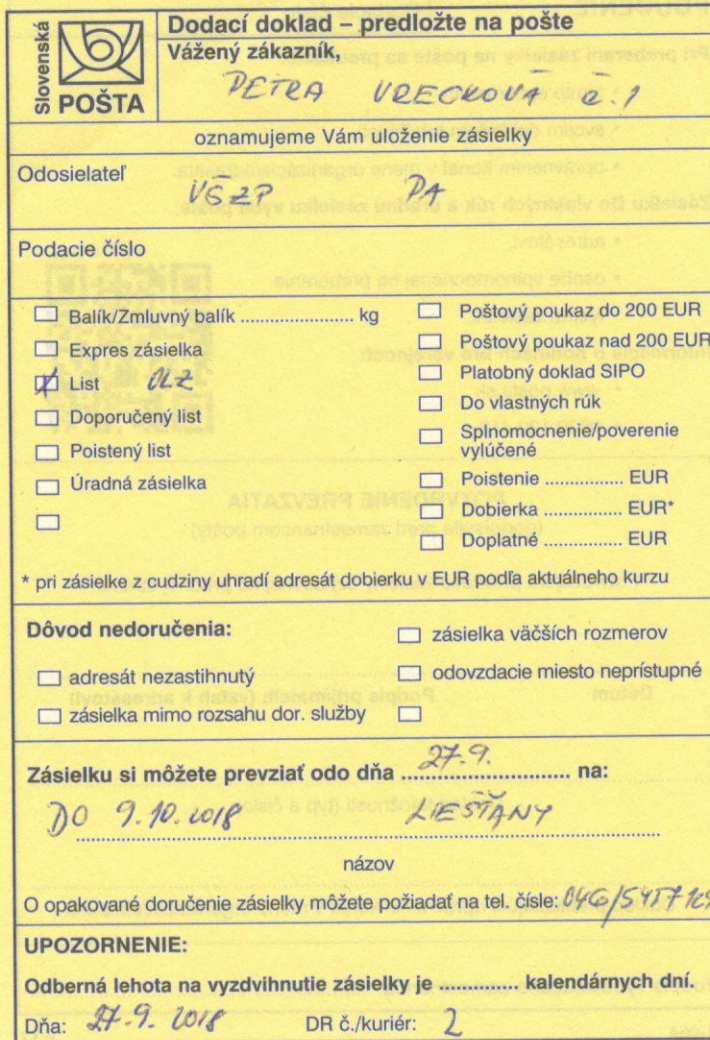 Slovenská
POŠTA
Dodací doklad – predložte na pošte
Vážený zákazník,
PETRA VRECKOVÁ č.1
oznamujeme Vám uloženie zásielky
Odosielateľ
VŠZP PA
Podacie číslo
Balík/Zmluvný balík ....................... kg
Expres zásielka
List OLZ
Doporučený list
Poistený list
Úradná zásielka
Poštový poukaz do 200 EUR
Poštový poukaz nad 200 EUR
Platobný doklad SIPO
Do vlastných rúk
Splnomocnenie/poverenie
vylúčené
Poistenie ................ EUR
Dobierka ............... EUR*
Doplatné ................ EUR
* pri zásielke z cudziny uhradí adresát dobierku v EUR podľa aktuálneho kurzu
Dôvod nedoručenia:
adresát nezastihnutý
zásielka mimo rozsahu dor. služby
zásielka väčších rozmerov
odovzdacie miesto neprístupné
Zásielku si môžete prevziať odo dňa 27.9. na:
DO 9.10.2018 LIEŠŤANY
názov
O opakované doručenie zásielky môžete požiadať na tel. čísle:
UPOZORNENIE:
Odberná lehota na vyzdvihnutie zásielky je ............. kalendárnych dní.
Dňa: 27.9. 2018 DR č./kuriér: 2